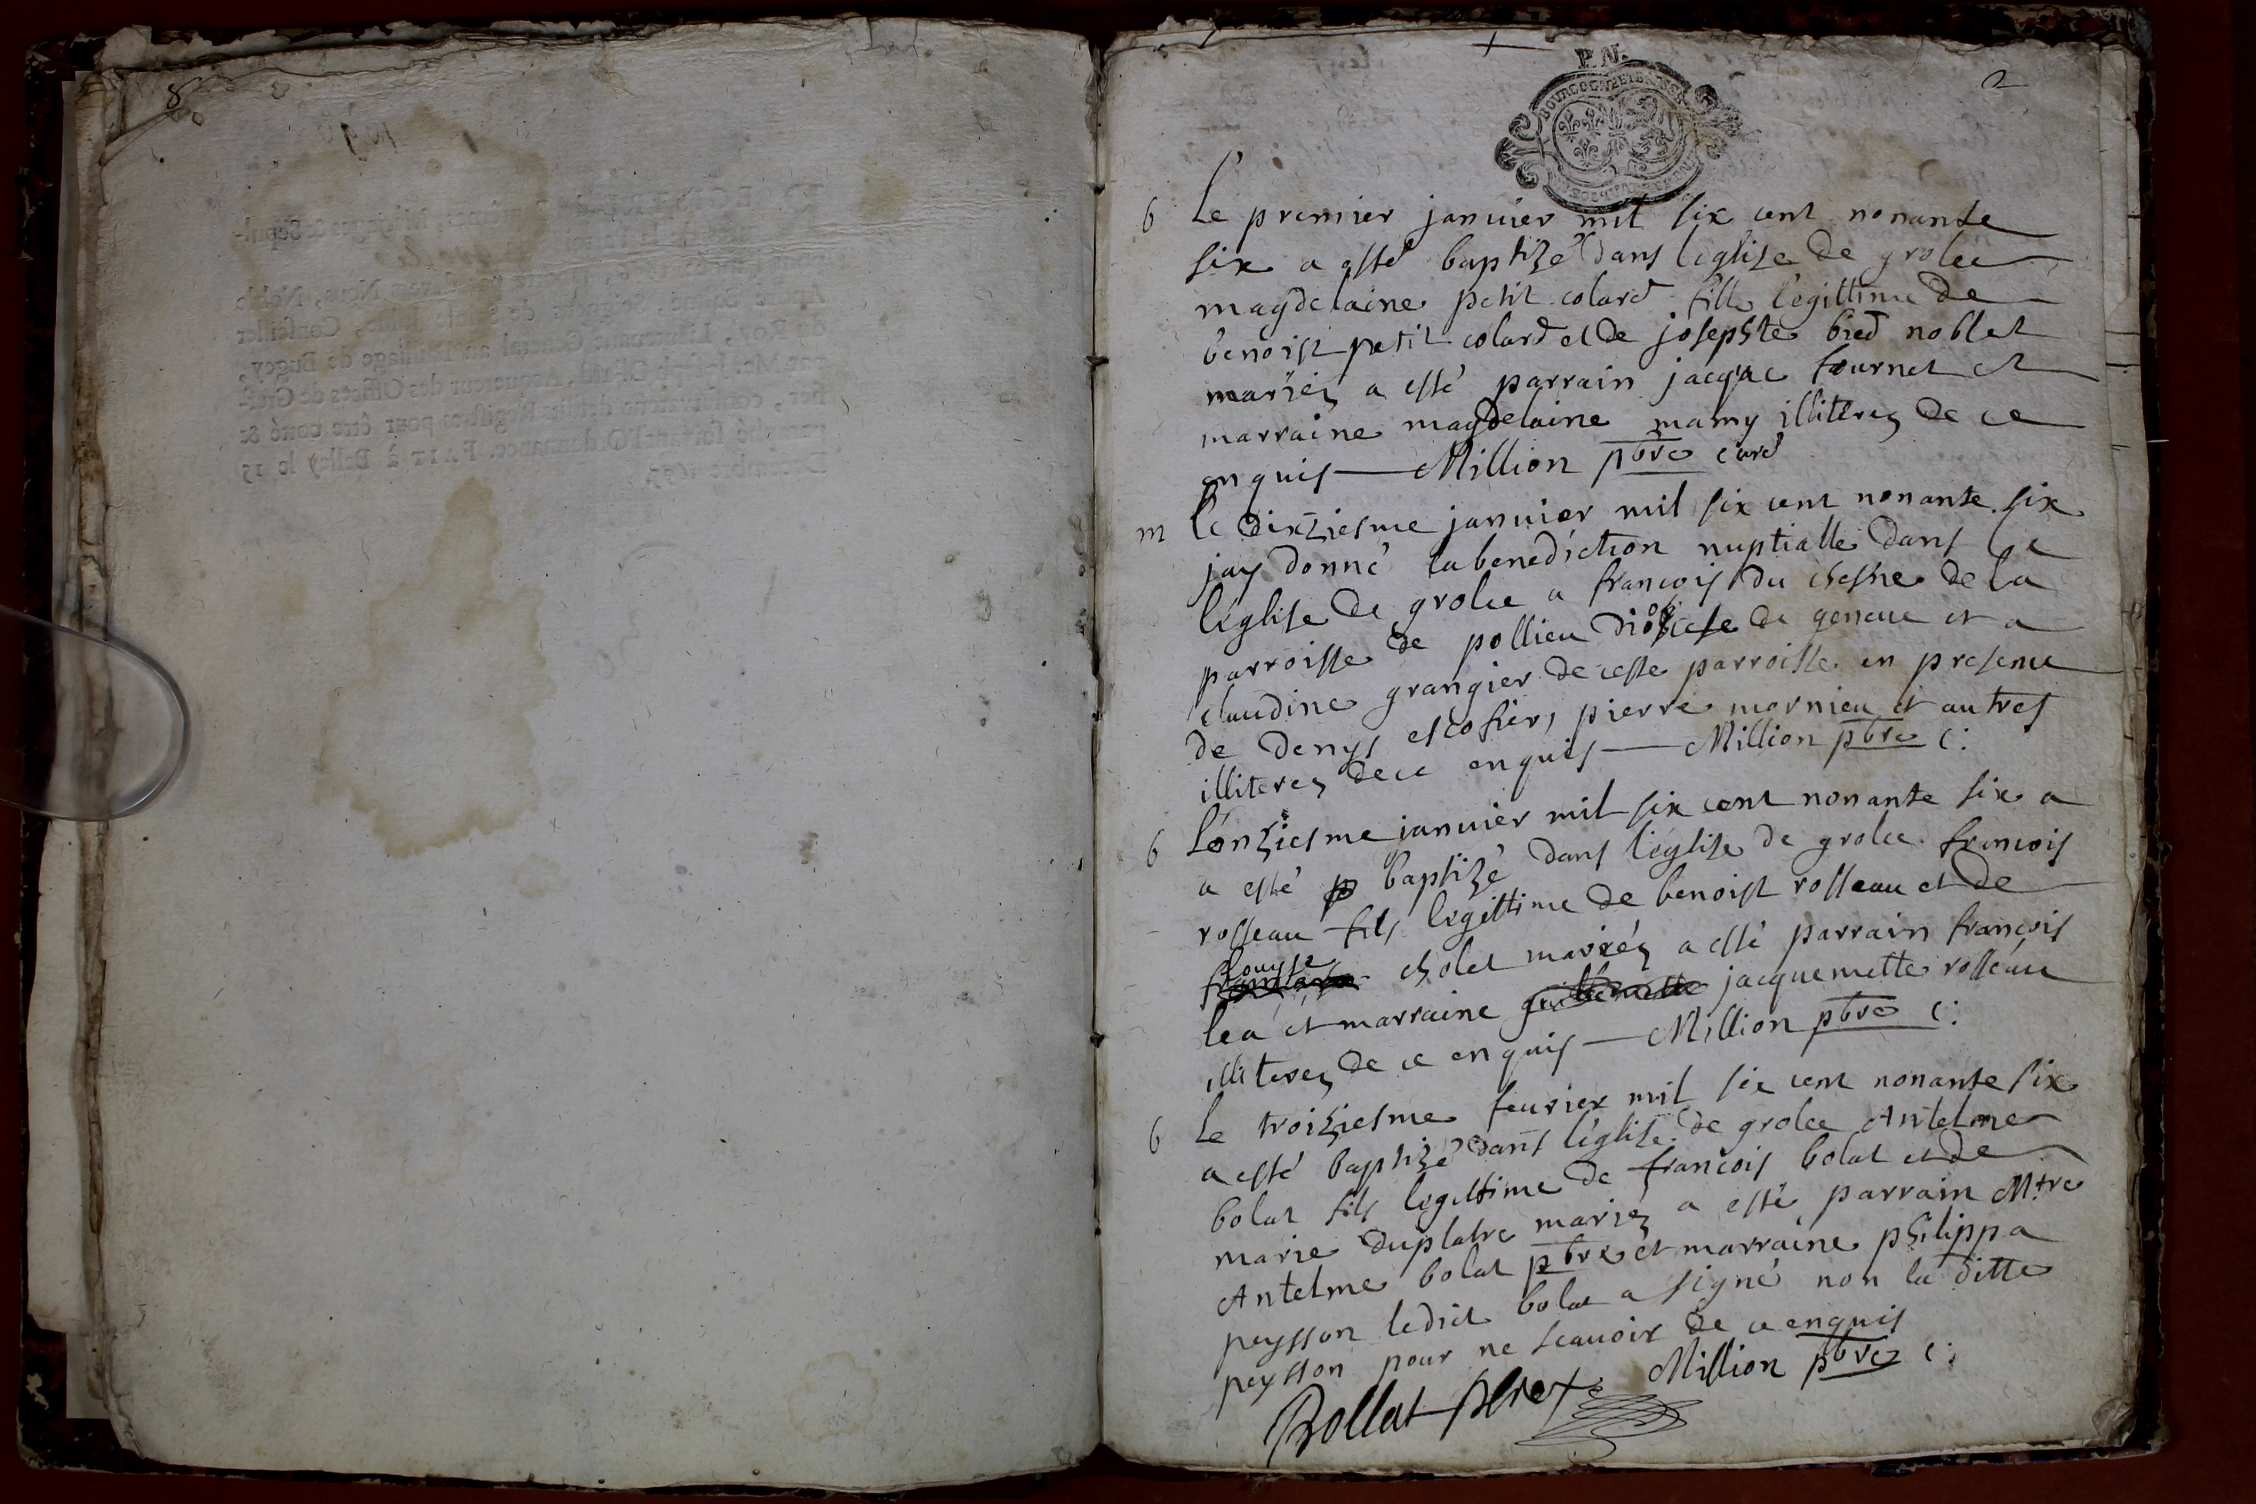 8
P. N.
BOURGOGNE ET BRESSE
2
b Le premier januier mil six cent nonante
six a esté baptizé dans l'eglize de grolée
magdelaine petit colard fille legittime de
benoist petit colard et de josephte bred noblet
mariéz a esté parrain jacque tournet et
marraine magdelaine mamy illiteréz de ce
enquis — Million pbre curé
m le dixziesme januier mil six cent nonante six
jay donné la benediction nuptialle dans le
l'eglise de grolee a françois du chesne de la
parroisse de pollieu diocese de geneue et a
claudine grangier de ceste parroisse en presence
de denys escofier, pierre mornieu et autres
illiteréz de ce enquis — Million pbre c:
b L'onziesme januier mil six cent nonante six a
a esté p baptizé dans l'eglize de grolee françois
rosseau fils legittime de benoist rosseau et de
louyse
cholet mariéz a esté parrain françois
lea et marraine guillemette jacquemette rosseau
illiteréz de ce enquis — Million pbre c:
b Le troiziesme feurier mil six cent nonante six
a esté baptizé dans l'eglize de grolee Antelme
bolat fils legittime de françois bolat et de
marie duplatre mariéz a esté parrain Mtre
Antelme bolat pbre et marraine philippa
peysson ledict bolat a signé non la ditte
peysson pour ne scauoir de ce enquis
Bollat pbre Million pbre c: